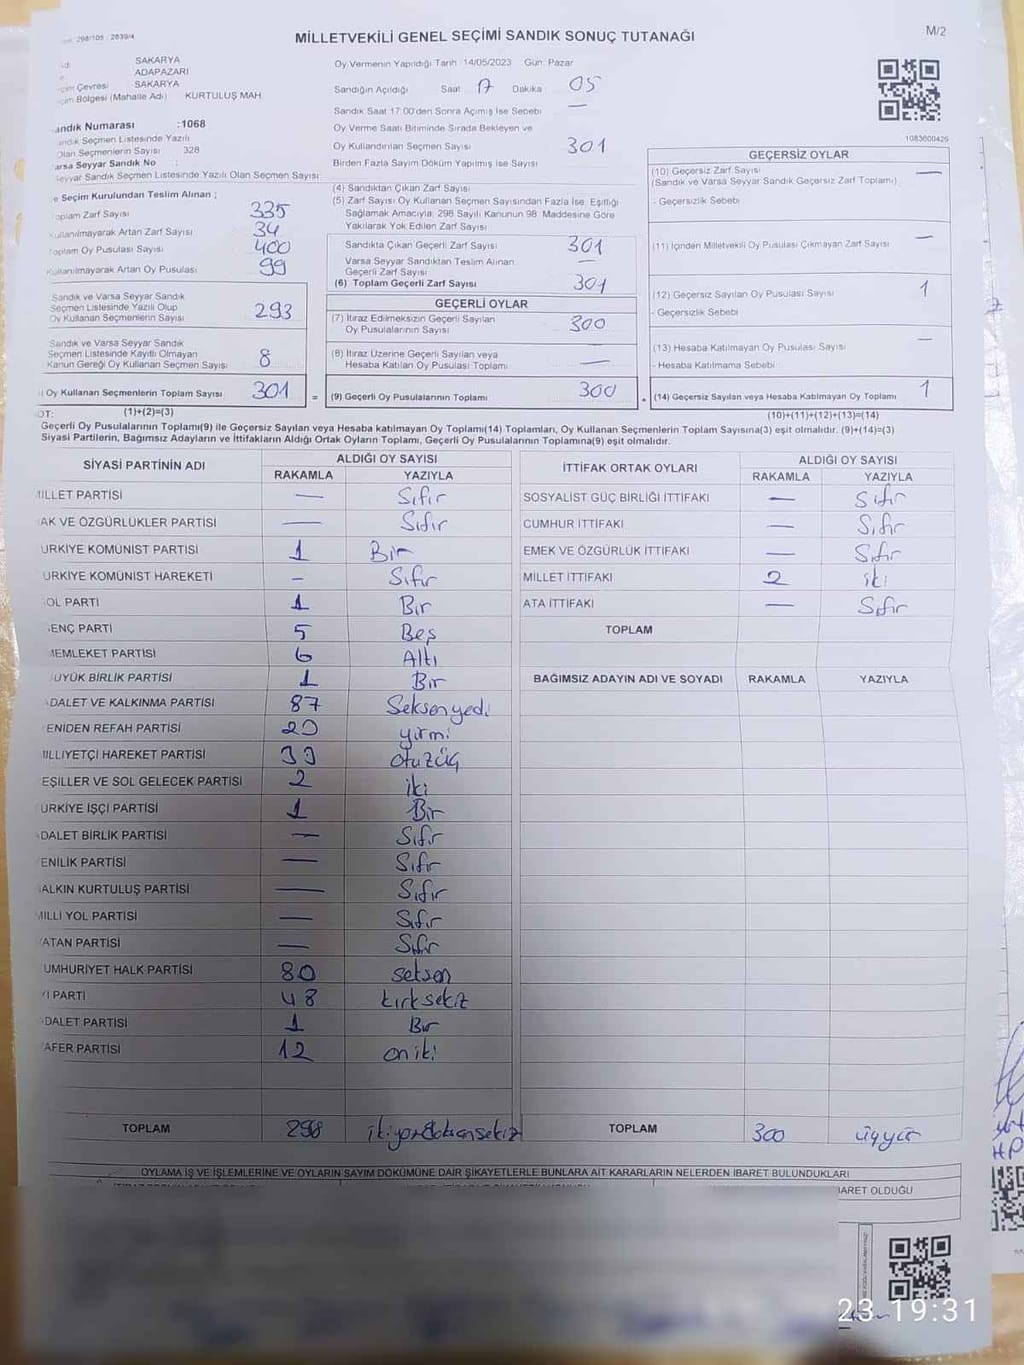 298/105 2839/4
MİLLETVEKİLİ GENEL SEÇİMİ SANDIK SONUÇ TUTANAĞI
M/2
SAKARYA
ADAPAZARI
Çevresi SAKARYA
Bölgesi (Mahalle Adı) KURTULUŞ MAH.
andık Numarası :1068
andık Seçmen Listesinde Yazılı
Olan Seçmenlerin Sayısı 328
arsa Seyyar Sandık No :
Seyyar Sandık Seçmen Listesinde Yazılı Olan Seçmen Sayısı
e Seçim Kurulundan Teslim Alınan ;
oplam Zarf Sayısı 335
ullanılmayarak Artan Zarf Sayısı 34
oplam Oy Pusulası Sayısı 400
ullanılmayarak Artan Oy Pusulası 99
Sandık ve Varsa Seyyar Sandık
Seçmen Listesinde Yazılı Olup
Oy Kullanan Seçmenlerin Sayısı 293
Sandık ve Varsa Seyyar Sandık
Seçmen Listesinde Kayıtlı Olmayan
Kanun Gereği Oy Kullanan Seçmen Sayısı 8
Oy Kullanan Seçmenlerin Toplam Sayısı 301 =
(1)+(2)=(3)
Oy Vermenin Yapıldığı Tarih 14/05/2023 Gün: Pazar
Sandığın Açıldığı Saat 17 Dakika : 05
Sandık Saat 17:00'den Sonra Açımış İse Sebebi —
Oy Verme Saati Bitiminde Sırada Bekleyen ve
Oy Kullandırılan Seçmen Sayısı 301
Birden Fazla Sayım Döküm Yapılmış İse Sayısı
(4) Sandıktan Çıkan Zarf Sayısı
(5) Zarf Sayısı Oy Kullanan Seçmen Sayısından Fazla İse, Eşitliği
Sağlamak Amacıyla; 298 Sayılı Kanunun 98. Maddesine Göre
Yakılarak Yok Edilen Zarf Sayısı
Sandıkta Çıkan Geçerli Zarf Sayısı 301
Varsa Seyyar Sandıktan Teslim Alınan
Geçerli Zarf Sayısı —
(6) Toplam Geçerli Zarf Sayısı 301
GEÇERLİ OYLAR
(7) İtiraz Edilmeksizin Geçerli Sayılan
Oy Pusulalarının Sayısı 300
(8) İtiraz Üzerine Geçerli Sayılan veya
Hesaba Katılan Oy Pusulası Toplamı —
(9) Geçerli Oy Pusulalarının Toplamı 300
1083600426
GEÇERSİZ OYLAR
(10) Geçersiz Zarf Sayısı —
(Sandık ve Varsa Seyyar Sandık Geçersiz Zarf Toplamı)
- Geçersizlik Sebebi
(11) İçinden Milletvekili Oy Pusulası Çıkmayan Zarf Sayısı —
(12) Geçersiz Sayılan Oy Pusulası Sayısı 1
- Geçersizlik Sebebi
(13) Hesaba Katılmayan Oy Pusulası Sayısı —
- Hesaba Katılmama Sebebi
(14) Geçersiz Sayılan veya Hesaba Katılmayan Oy Toplamı 1
(10)+(11)+(12)+(13)=(14)
OT:
Geçerli Oy Pusulalarının Toplamı(9) ile Geçersiz Sayılan veya Hesaba katılmayan Oy Toplamı(14) Toplamları, Oy Kullanan Seçmenlerin Toplam Sayısına(3) eşit olmalıdır. (9)+(14)=(3)
Siyasi Partilerin, Bağımsız Adayların ve İttifakların Aldığı Ortak Oyların Toplamı, Geçerli Oy Pusulalarının Toplamına(9) eşit olmalıdır.
SİYASİ PARTİNİN ADI
ALDIĞI OY SAYISI
RAKAMLA YAZIYLA
MİLLET PARTİSİ — Sıfır
AK VE ÖZGÜRLÜKLER PARTİSİ — Sıfır
ÜRKİYE KOMÜNİST PARTİSİ 1 Bir
ÜRKİYE KOMÜNİST HAREKETİ — Sıfır
OL PARTİ 1 Bir
ENÇ PARTİ 5 Beş
MEMLEKET PARTİSİ 6 Altı
ÜYÜK BİRLİK PARTİSİ 1 Bir
DALET VE KALKINMA PARTİSİ 87 Seksenyedi
ENİDEN REFAH PARTİSİ 20 yirmi
İLLİYETÇİ HAREKET PARTİSİ 33 otuzüç
EŞİLLER VE SOL GELECEK PARTİSİ 2 iki
ÜRKİYE İŞÇİ PARTİSİ 1 Bir
DALET BİRLİK PARTİSİ — Sıfır
ENİLİK PARTİSİ — Sıfır
ALKIN KURTULUŞ PARTİSİ — Sıfır
MİLLİ YOL PARTİSİ — Sıfır
ATAN PARTİSİ — Sıfır
UMHURİYET HALK PARTİSİ 80 seksen
Yİ PARTİ 48 kırksekiz
DALET PARTİSİ 1 Bir
AFER PARTİSİ 12 oniki
TOPLAM 298 ikiyüzdoksansekiz
İTTİFAK ORTAK OYLARI
ALDIĞI OY SAYISI
RAKAMLA YAZIYLA
SOSYALİST GÜÇ BİRLİĞİ İTTİFAKI — Sıfır
CUMHUR İTTİFAKI — Sıfır
EMEK VE ÖZGÜRLÜK İTTİFAKI — Sıfır
MİLLET İTTİFAKI 2 iki
ATA İTTİFAKI — Sıfır
TOPLAM
BAĞIMSIZ ADAYIN ADI VE SOYADI RAKAMLA YAZIYLA
TOPLAM 300 üçyüz
OYLAMA İŞ VE İŞLEMLERİNE VE OYLARIN SAYIM DÖKÜMÜNE DAİR ŞİKAYETLERLE BUNLARA AİT KARARLARIN NELERDEN İBARET BULUNDUKLARI
BARET OLDUĞU
23 19:31